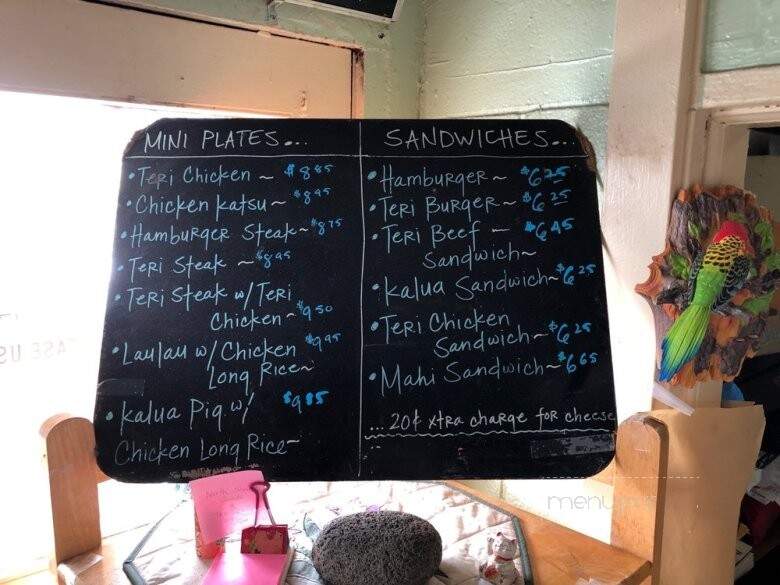 MINI PLATES...
Teri Chicken ~ $8.85
Chicken Katsu ~ $8.95
Hamburger Steak ~ $8.75
Teri Steak ~ $8.95
Teri Steak w/ Teri
Chicken ~ $9.50
Laulau w/ Chicken $9.95
Long Rice ~
Kalua Pig w/
Chicken Long Rice ~
SANDWICHES...
Hamburger ~ $6.25
Teri Burger ~ $6.25
Teri Beef ~ $6.45
Sandwich ~
Kalua Sandwich ~ $6.25
Teri Chicken
Sandwich ~ $6.25
Mahi Sandwich ~ $6.65
... 20¢ xtra charge for cheese